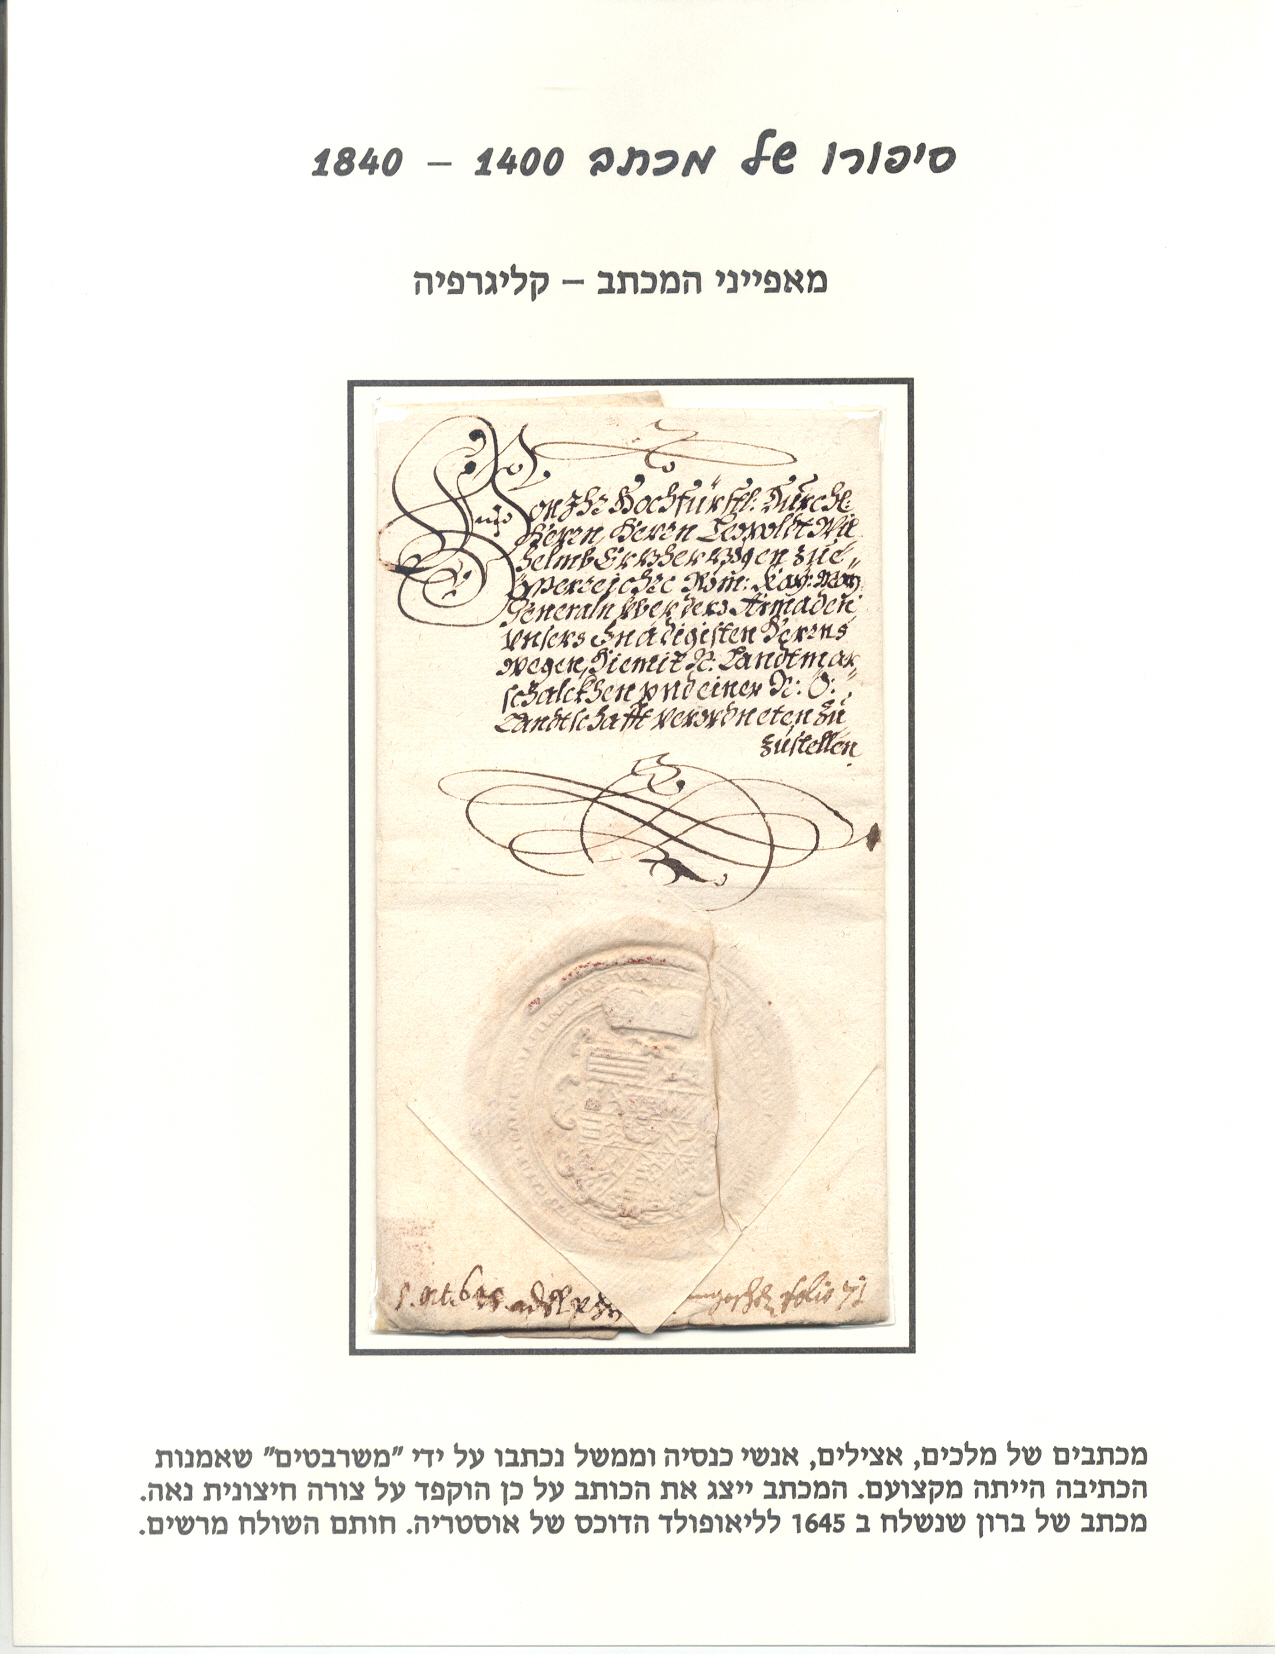 סיפורו של מכתב 1400 – 1840
מאפייני המכתב – קליגרפיה
Von Ihr Hochfürstl: Durchl:
Herrn, Herrn Leopoldt Wil
helmb Erzherzogen zue
Össterreich Röm: Kay: May
Generaln yber dero Armaden
vnsers Gnädigisten Herrns
wegen, Hiemit N: Landtmar
schalckhen vnd einer N: Ö:
Landtschafft verordneten zu
zustellen
folio 71
מכתבים של מלכים, אצילים, אנשי כנסיה וממשל נכתבו על ידי "משרבטים" שאמנות
הכתיבה הייתה מקצועם. המכתב ייצג את הכותב על כן הוקפד על צורה חיצונית נאה.
מכתב של ברון שנשלח ב 1645 לליאופולד הדוכס של אוסטריה. חותם השולח מרשים.